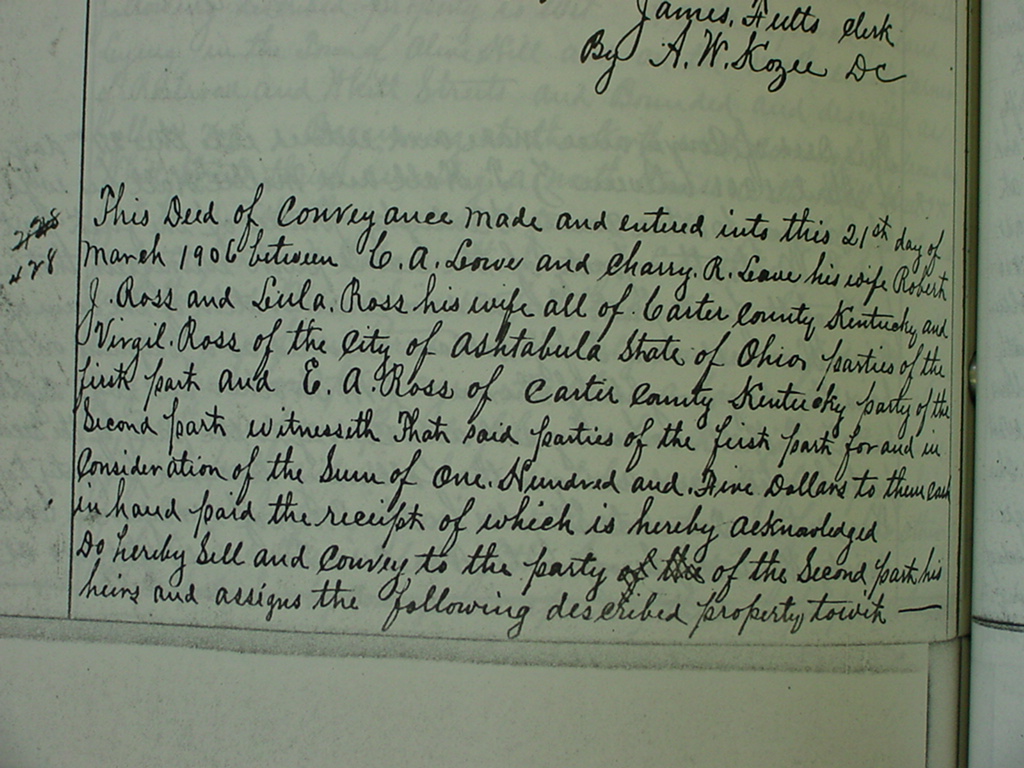 James, Fults Clerk
By A. W. Kozee DC
This Deed of Conveyance made and entered into this 21st day of
March 1906 between C. A. Lowe and Charry. R. Lowe his wife Robert
J. Ross and Lula. Ross his wife all of Carter County Kentucky and
Virgil. Ross of the City of Ashtabula State of Ohio, parties of the
first part and E. A. Ross of Carter County Kentucky party of the
Second part witnesseth That said parties of the first part for and in
Consideration of the Sum of One. Hundred and. Five Dollars to them cash
in hand paid the receipt of which is hereby acknowledged
Do hereby Sell and Convey to the party of the of the Second part his
heirs and assigns the following described property, towit —